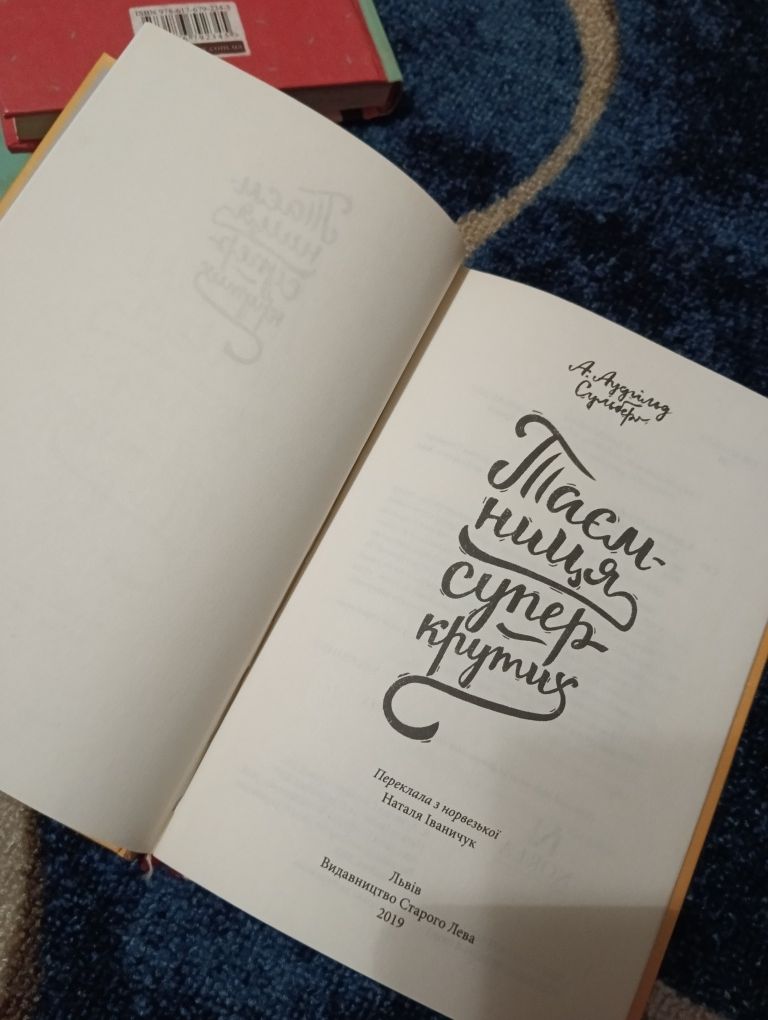 ISBN 978-617-679-234-5
.com.ua
А. Аудгільд
Сульберг
Таєм-
ниця
супер-
крутих
Переклала з норвезької
Наталя Іваничук
Львів
Видавництво Старого Лева
2019